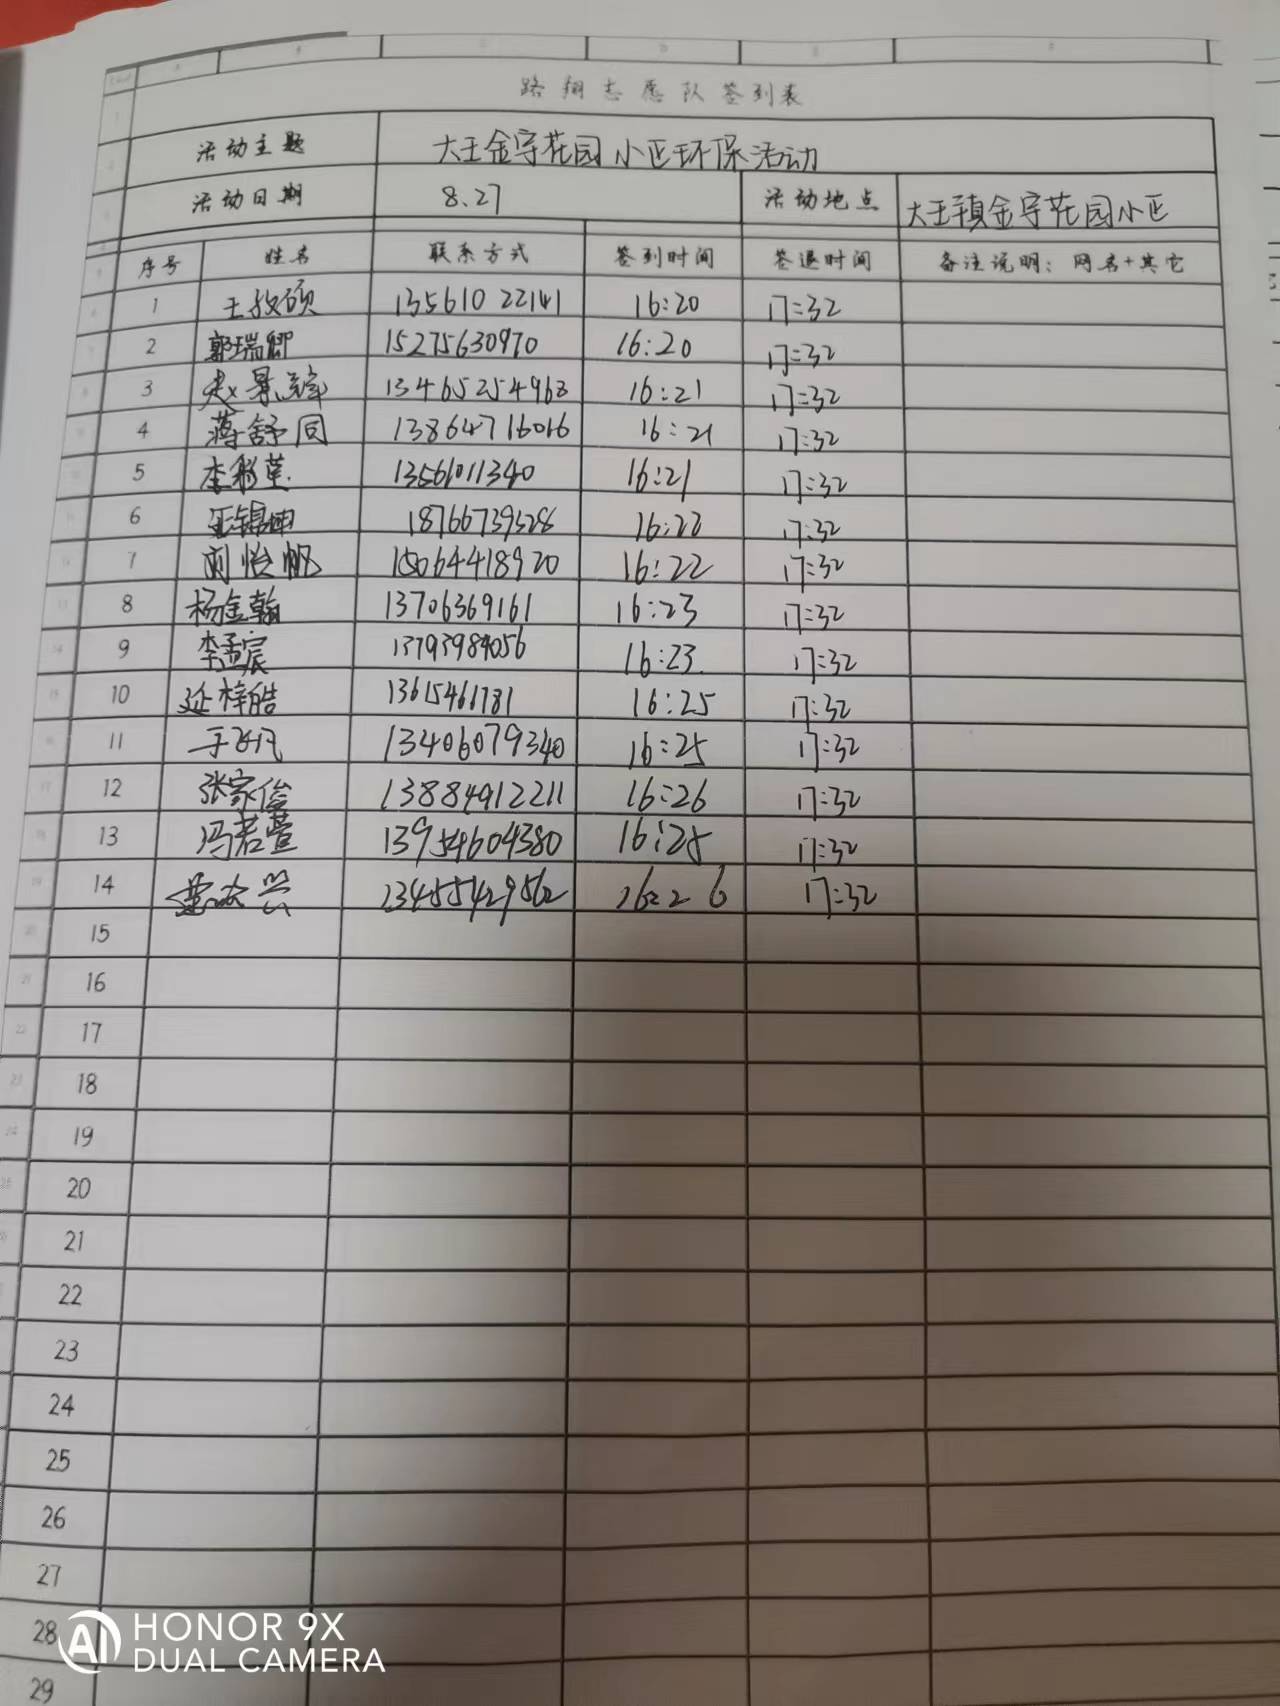 路翔志愿队签到表
活动主题 大王金宇花园小区环保活动
活动日期 8.27 活动地点 大王镇金宇花园小区
序号 姓名 联系方式 签到时间 签退时间 备注说明：网名+其它
1 王孜硕 13561022141 16:20 17:32
2 郭瑞卿 15275630970 16:20 17:32
3 赵景 13465254963 16:21 17:32
4 蒋舒同 13864716016 16:21 17:32
5 李 13561011340 16:21 17:32
6 王锦坤 18766739528 16:22 17:32
7 刘怡帆 15064418920 16:22 17:32
8 杨金翰 13706369161 16:23 17:32
9 李孟宸 13793984056 16:23 17:32
10 延梓皓 13615461781 16:25 17:32
11 于飞凡 13406079340 16:25 17:32
12 张家俊 13884912211 16:26 17:32
13 冯若萱 13954604380 16:25 17:32
14 13455429562 16:26 17:32
15
16
17
18
19
20
21
22
23
24
25
26
27
28
29
AI HONOR 9X
DUAL CAMERA